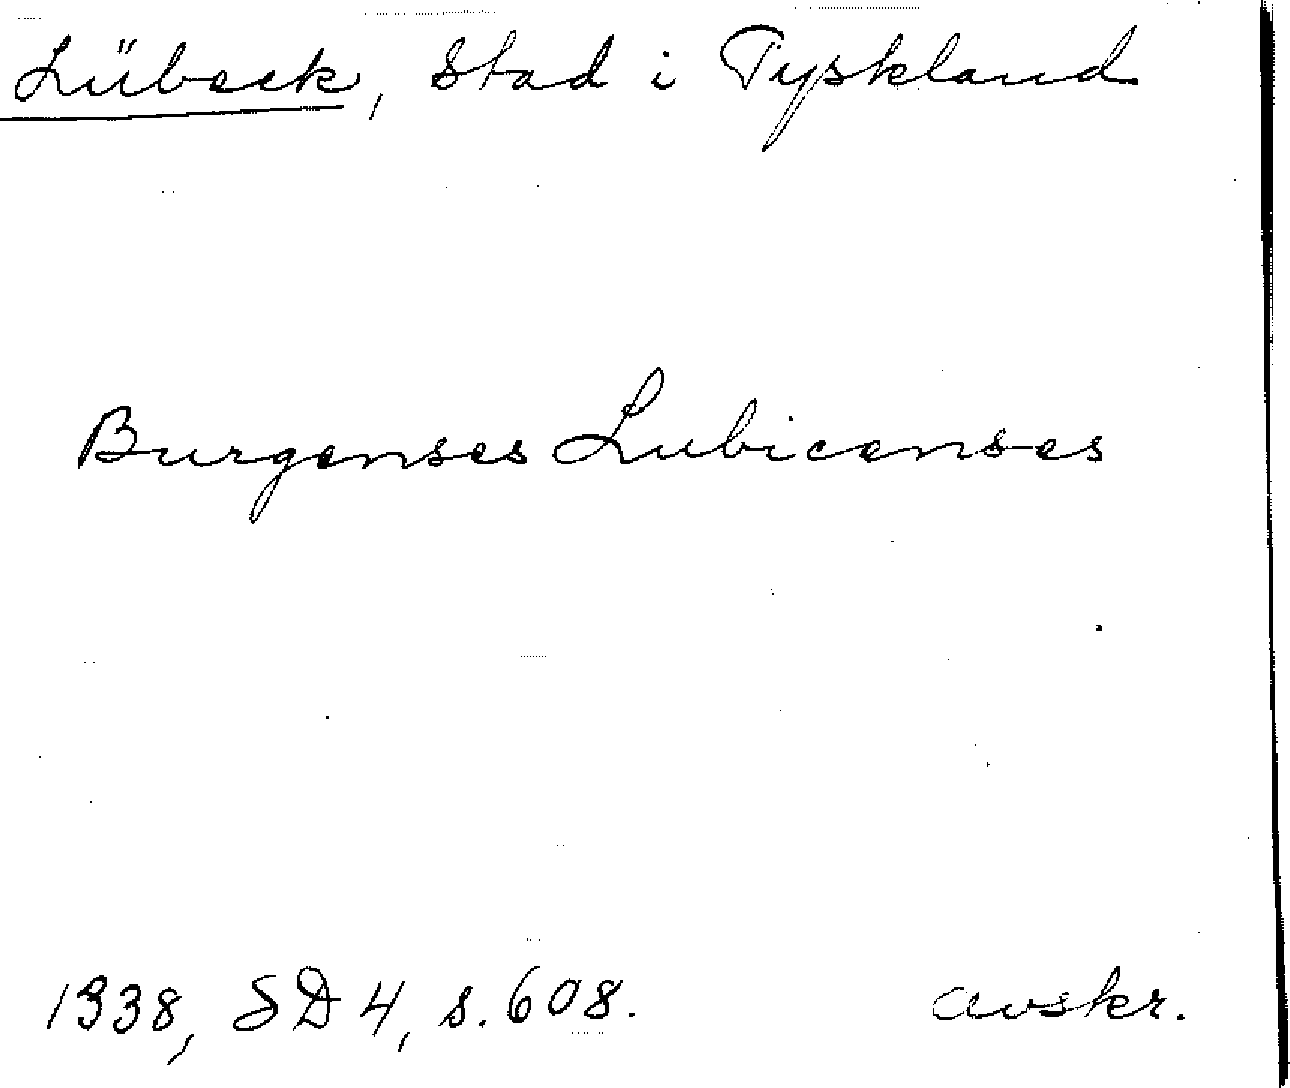 Lübeck, Stad i Tyskland
Burgenses Lubicenses
1338, SD 4, s. 608. avskr.